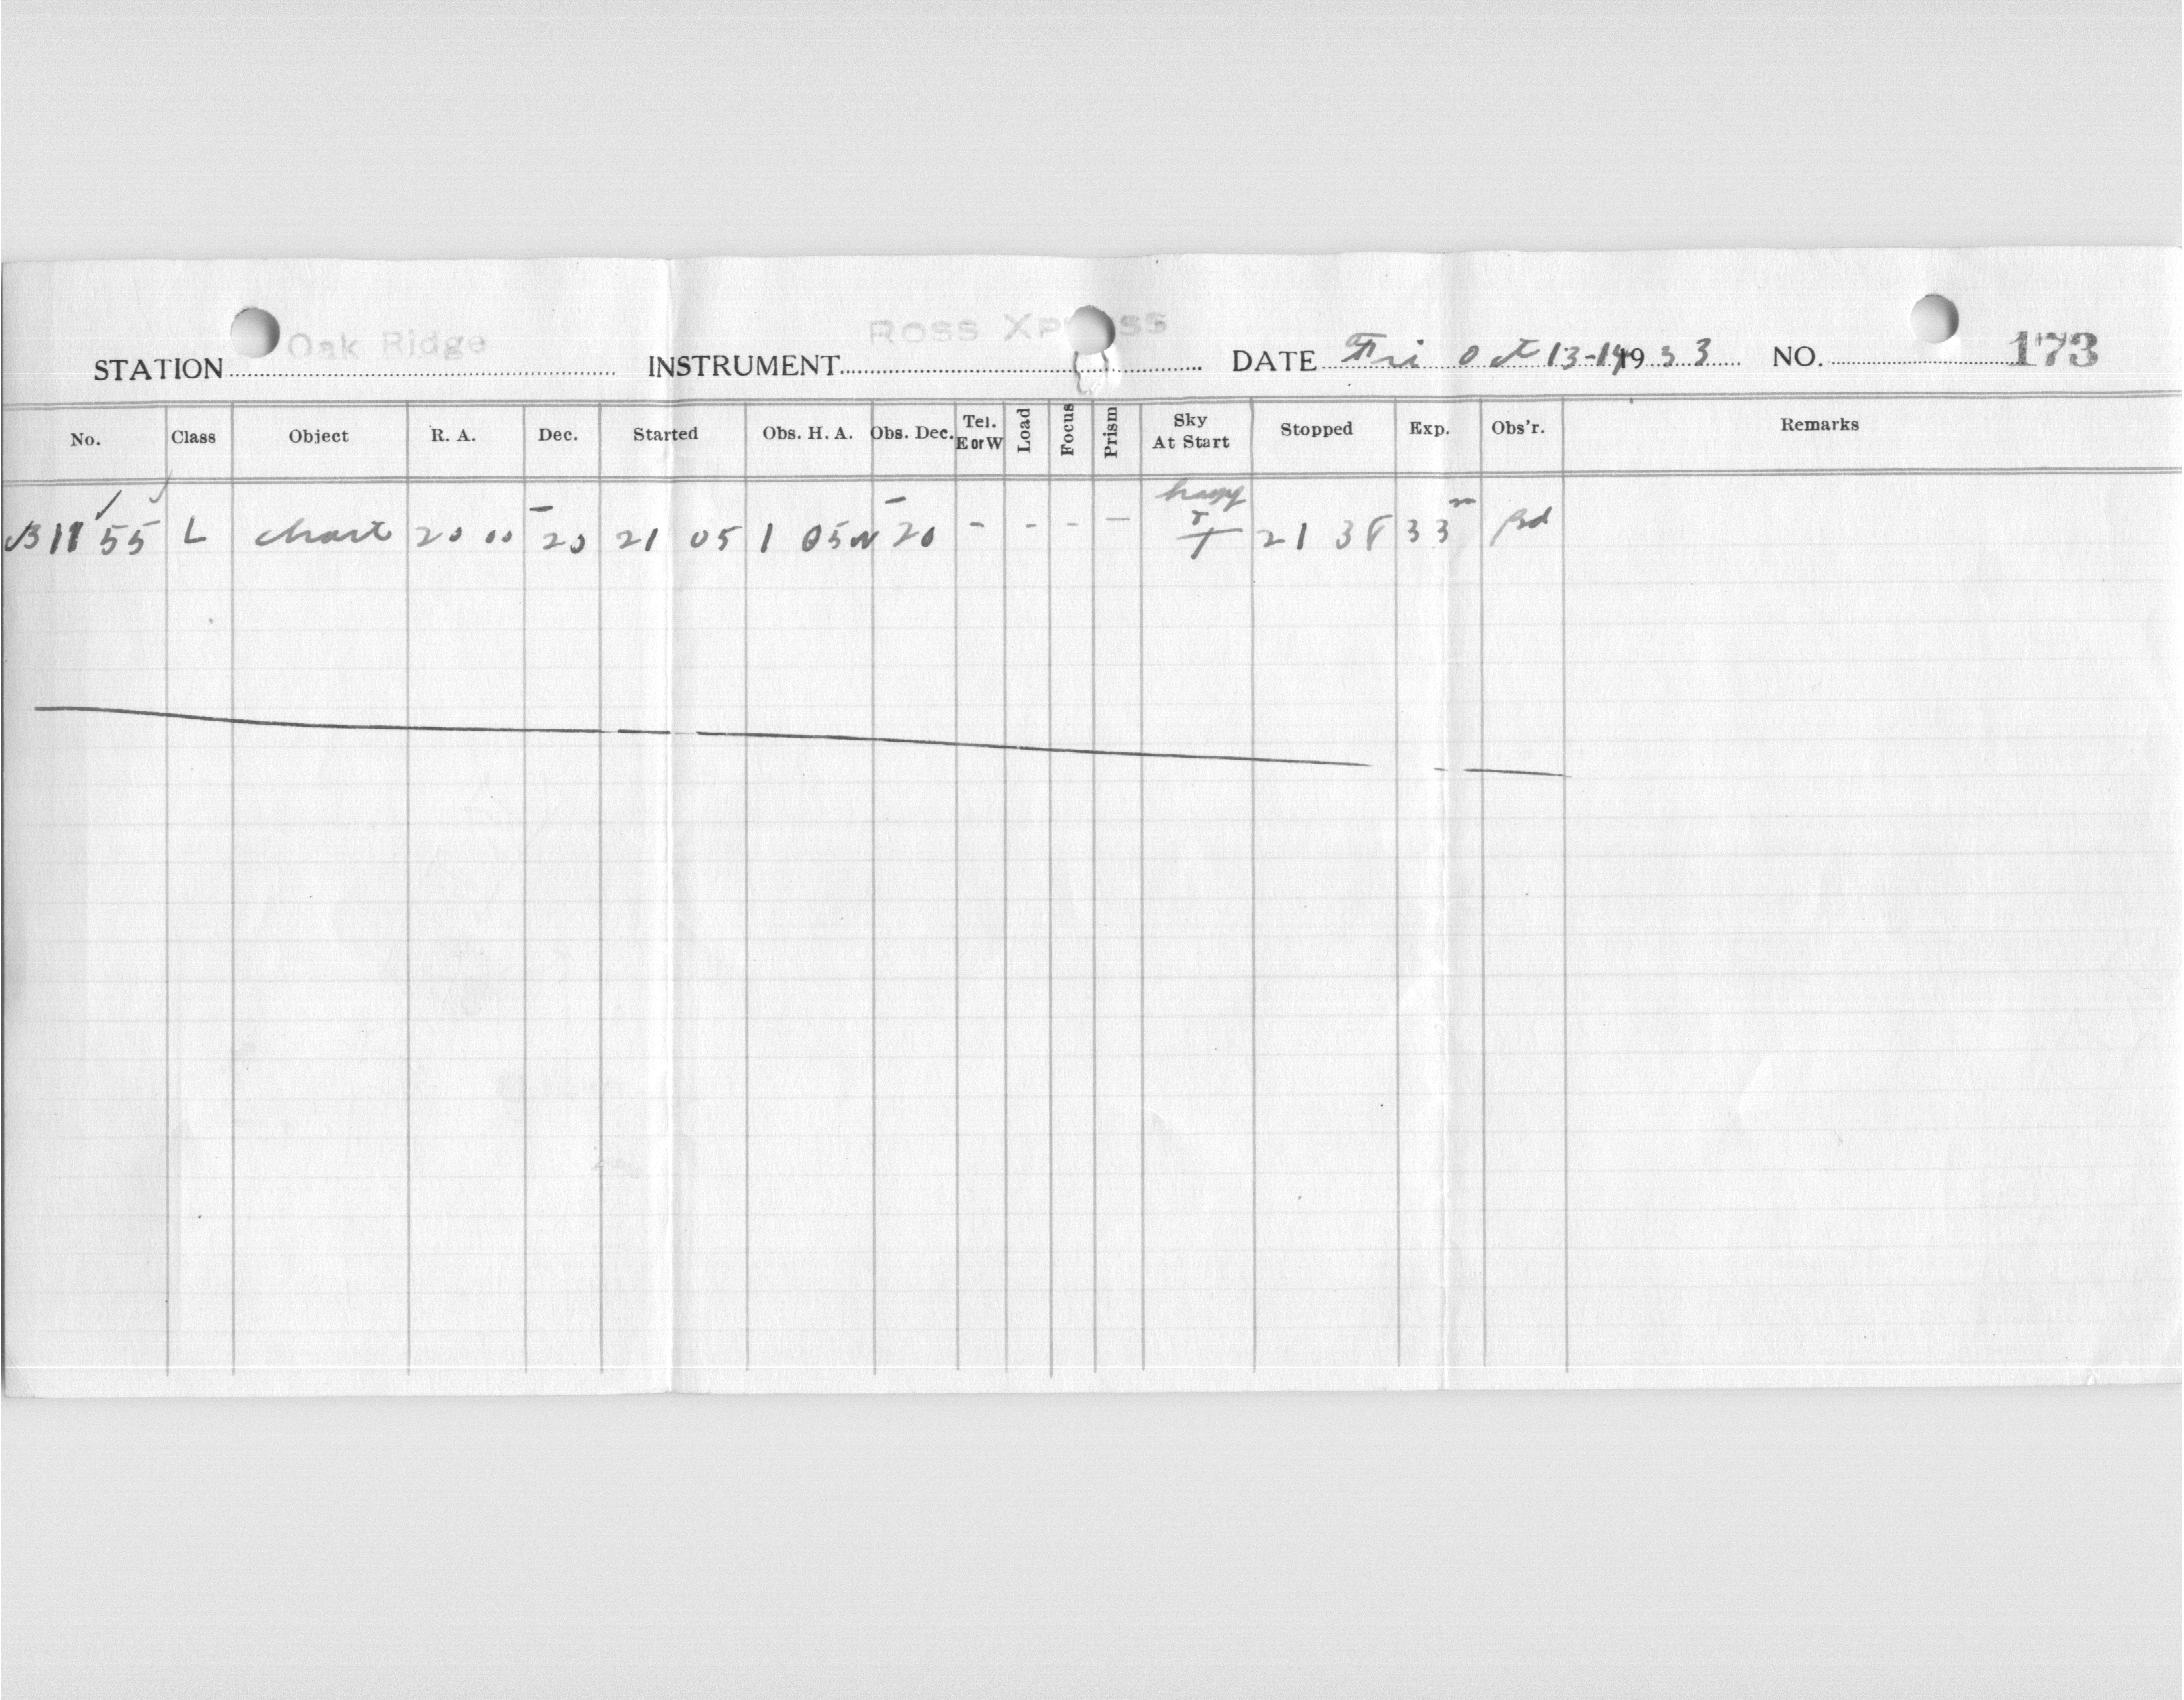 Oak Ridge ROSS XP SS
STATION INSTRUMENT DATE Fri Oct 13-14 1933 NO. 173
No. Class Object R. A. Dec. Started Obs. H. A. Obs. Dec. Tel. E or W Load Focus Prism Sky At Start Stopped Exp. Obs'r. Remarks
hazy
55 L chart 20 00 -20 21 05 1 05W -20 - - - - 21 38 33m